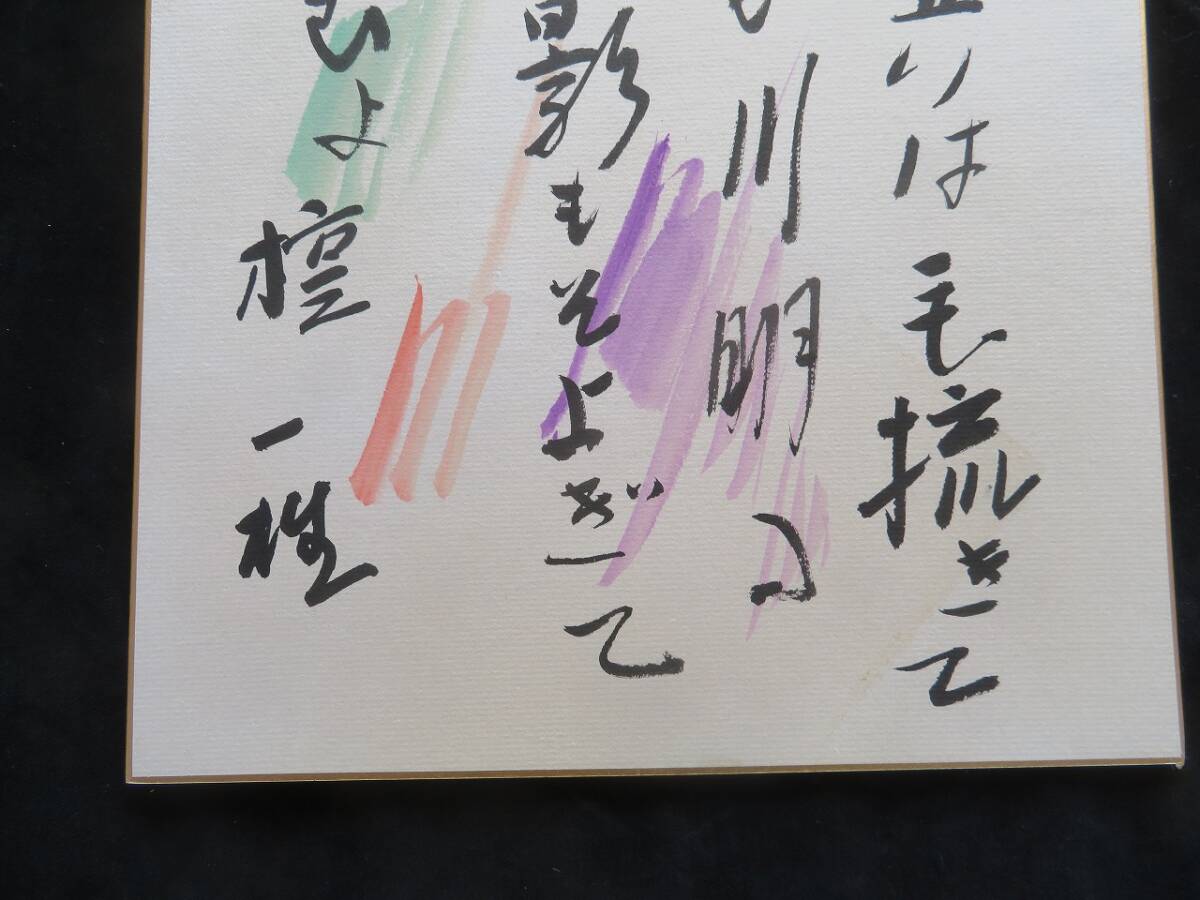 りは毛梳きて
川明
影もそよぎて
よ 檀 一雄